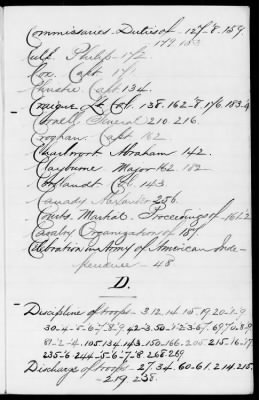 Commissaries. Duties of - 127-8. 159.
179 183
Culp. Philip - 172.
Cox. Capt 171
Christie Capt 134.
Cox 138. 162-8. 176 183-4
Cornell General 210 216.
Croghan Capt 162
Abraham 142.
Claybourne Major 162. 182
Cortlandt Col. 143
Canady Alexander 256.
Courts. Martial. Proceedings of 161.2
Cavalry Organization of 151
Celebration in Army of American Inde-
pendence - 48
D.
Discipline of troops - 3.12.14.15.19 20-1-9
30-4-5-6-7-8-9 42-3.50-1-2-3-67.69
81-2-4. 105.134.143.150.166.205.215-16-17
235-6 244-5-6-7-8 268.269
Discharge of troops - 27.34.60-61.214.215
219. 258.